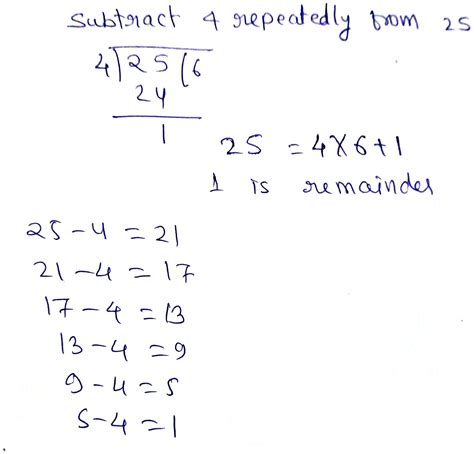 Subtract 4 repeatedly from 25
4)25(6
24
1
25 = 4×6+1
1 is remainder
25-4=21
21-4=17
17-4=13
13-4=9
9-4=5
5-4=1